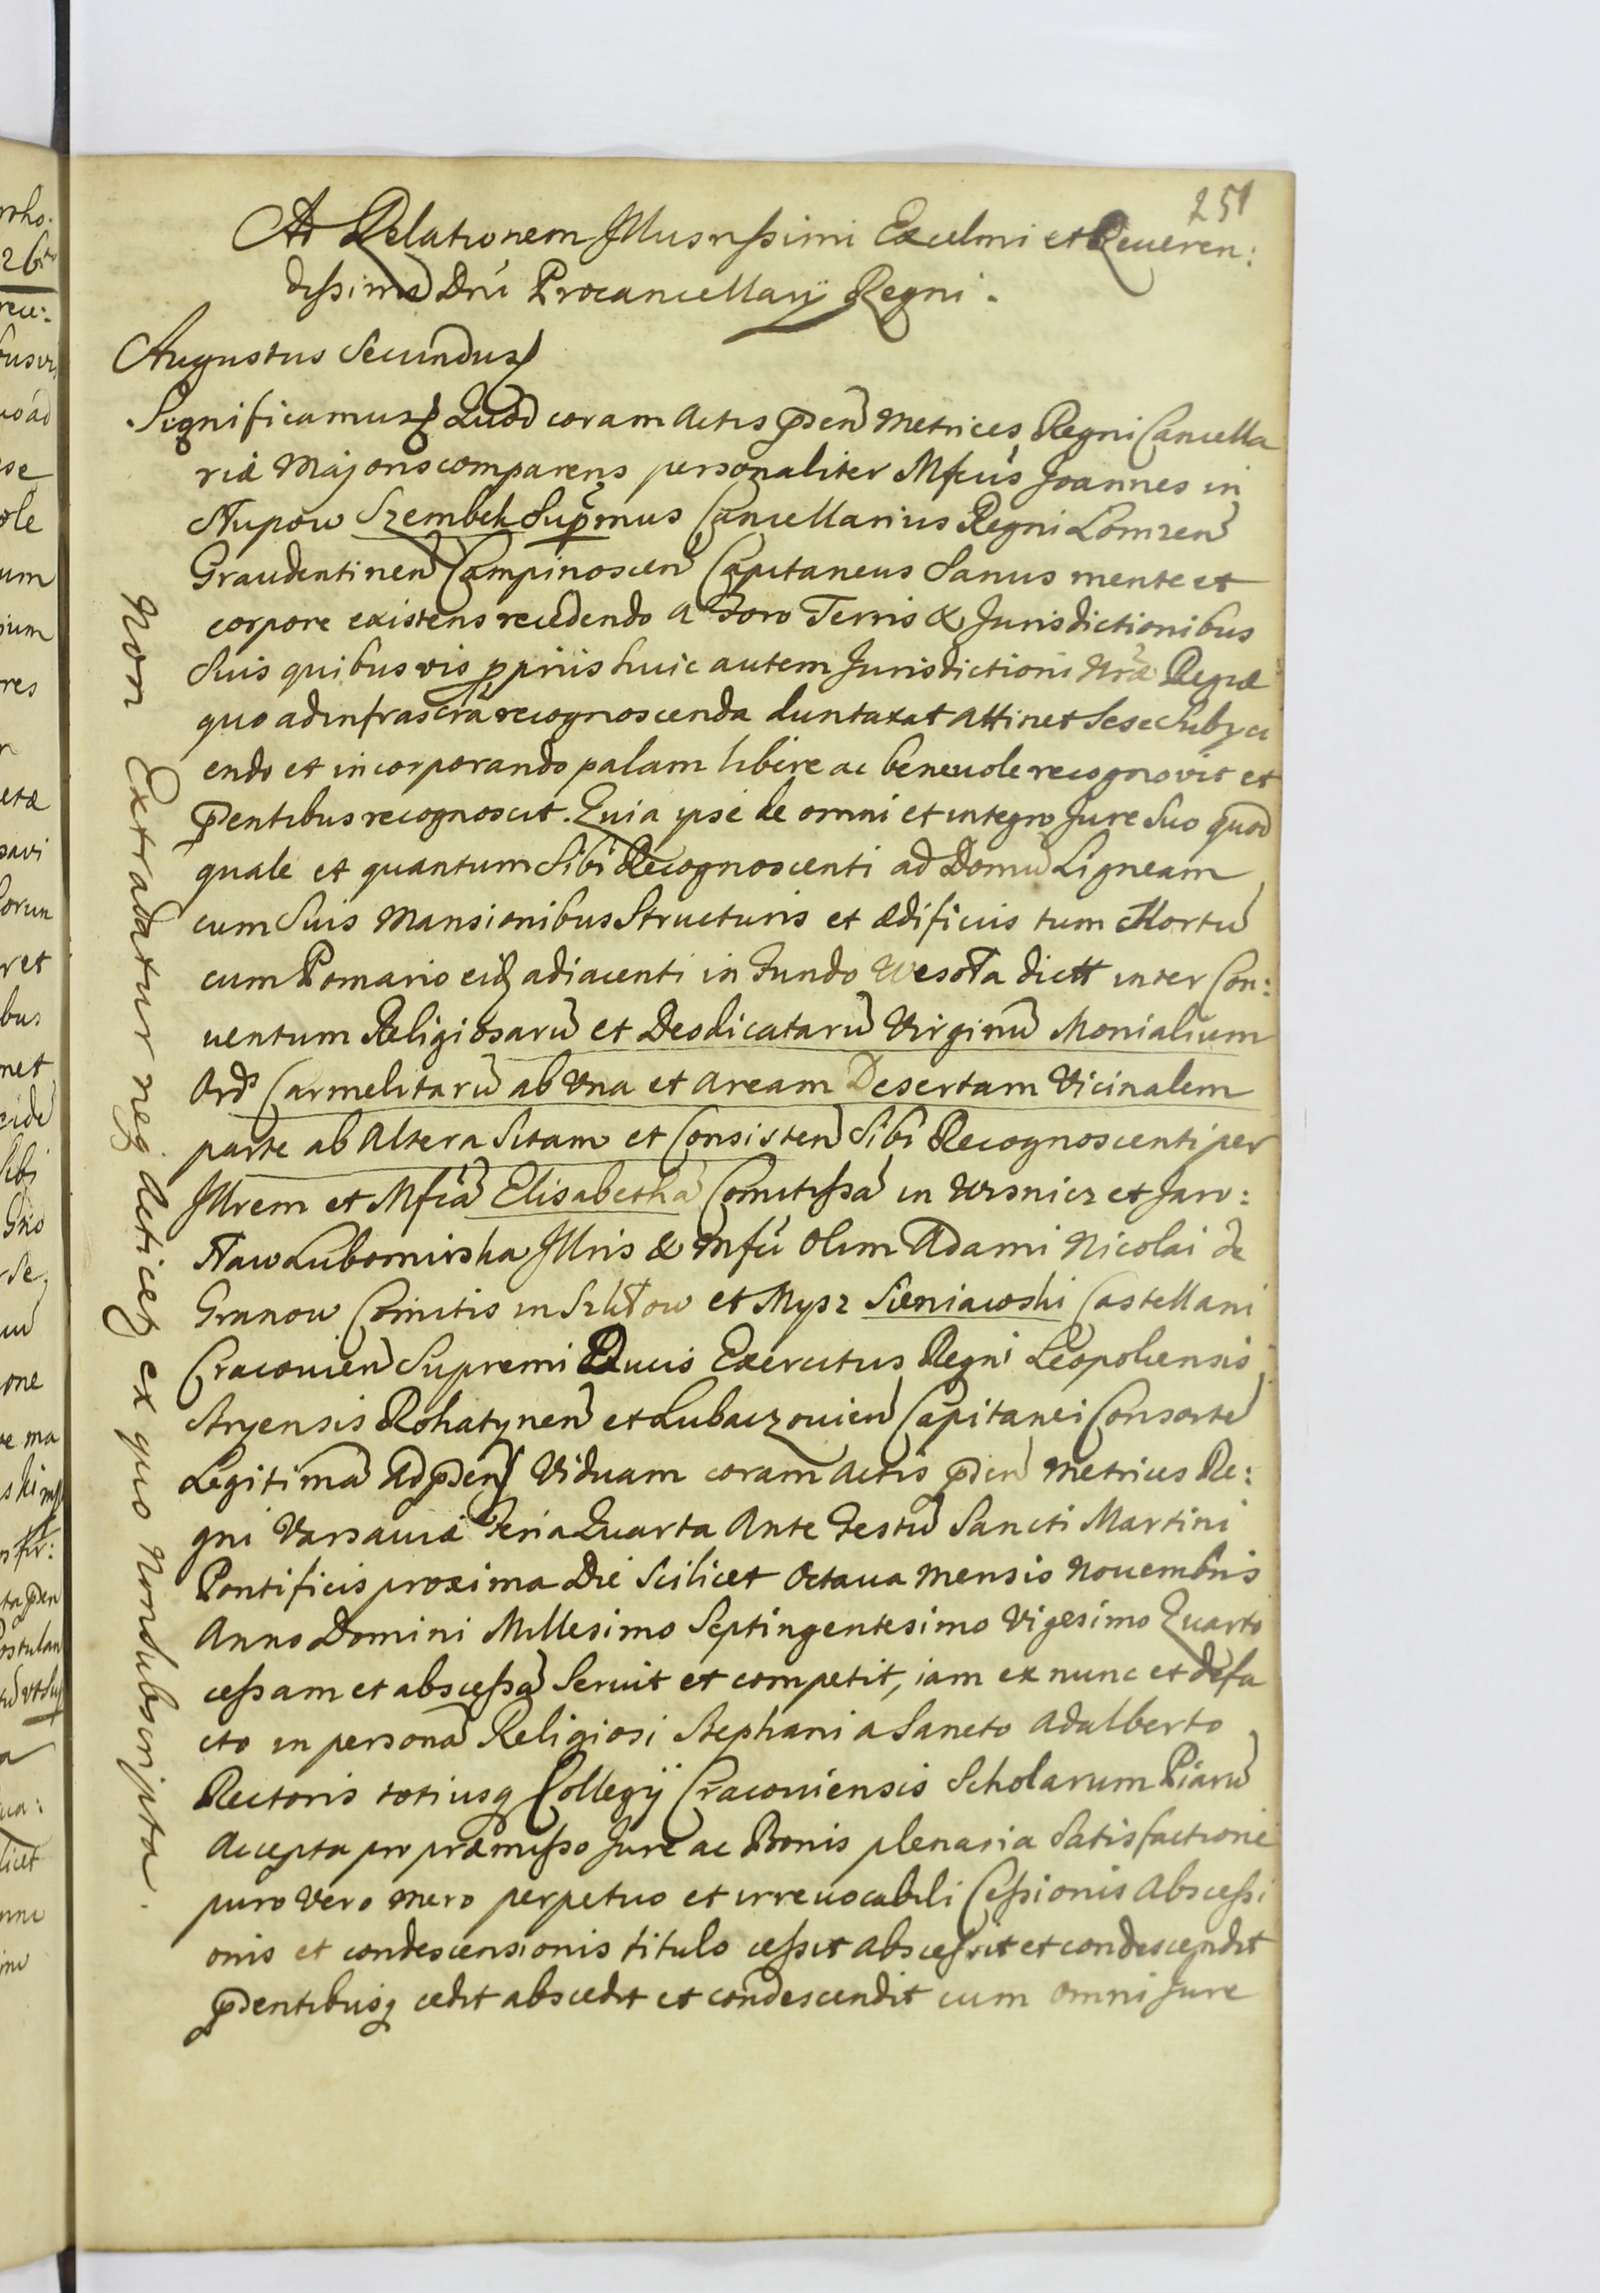 251
Ad Relationem Illusrissimi Excelmi et Reueren:
dissimi Dni Procancellarij Regni.
Augustus Secundus
Significamus Quod coram Actis pden Metrices Regni Cancella
riæ Majoris comparens personaliter Mfcus Joannes in
Słupow Szembek Supmus Cancellarius Regni Lomzen
Graudentinen Campinoscen Capitaneus Sanus mente et
corpore existens recedendo a Foro Terris & Jurisdictionibus
Suis quibusvis ppriis huic autem Jurisdictioni Nræ Regiæ
quo ad infrascra recognoscenda duntaxat attinet Sese Subyci
endo et incorporando palam libere ac beneuole recognovit et
pdentibus recognoscit. Quia ipse de omni et integro Jure Suo quod
quale et quantum Sibi Recognoscenti ad Domu Ligneam
cum Suis Mansionibus Structuris et ædificiis tum Hortu
cum Pomario eid adiacenti in Fundo Wesoła dictt inter Con:
uentum Religiosaru et Deodicataru Virginu Monialium
Ords Carmelitaru ab Una et Aream Desertam Vicinalem
parte ab Altera Sitam et Consisten Sibi Recognoscenti per
Illrem et Mfcà Elisabetha Comitissa in Wisnicz et Jaro:
sław Lubomirska Illris & Mfci Olim Adami Nicolai de
Granow Comitis in Szkłow et Mysz Sieniawski Castellani
Cracouien Supremi Ducis Exercitus Regni Leopoliensis
Stryensis Rohatynen et Lubaczouien Capitanei Consorte
Legitima ad pdens Viduam coram Actis pden Metrices Re:
gni Varsauiæ Feria Quarta Ante Festu Sancti Martini
Pontificis proxima Die Scilicet Octaua Mensis Nouembris
Anno Domini Millesimo Septingentesimo Vigesimo Quarto
cessam et abscessa Seruit et competit, iam ex nunc et de fa
cto in persona Religiosi Stephani a Sancto Adalberto
Rectoris totiusq Collegij Cracouiensis Scholarum Piaru
Accepta pro præmisso Jure ac Bonis plenaria Satisfactione
puro vero mero perpetuo et irreuocabili Cessionis Abscessi
onis et condescensionis titulo cessit abscessit et condescendit
pdentibusq cedit abscedit et condescendit cum omni Jure
Non Extradatur neq Acticet ex quo Non Subscripta.